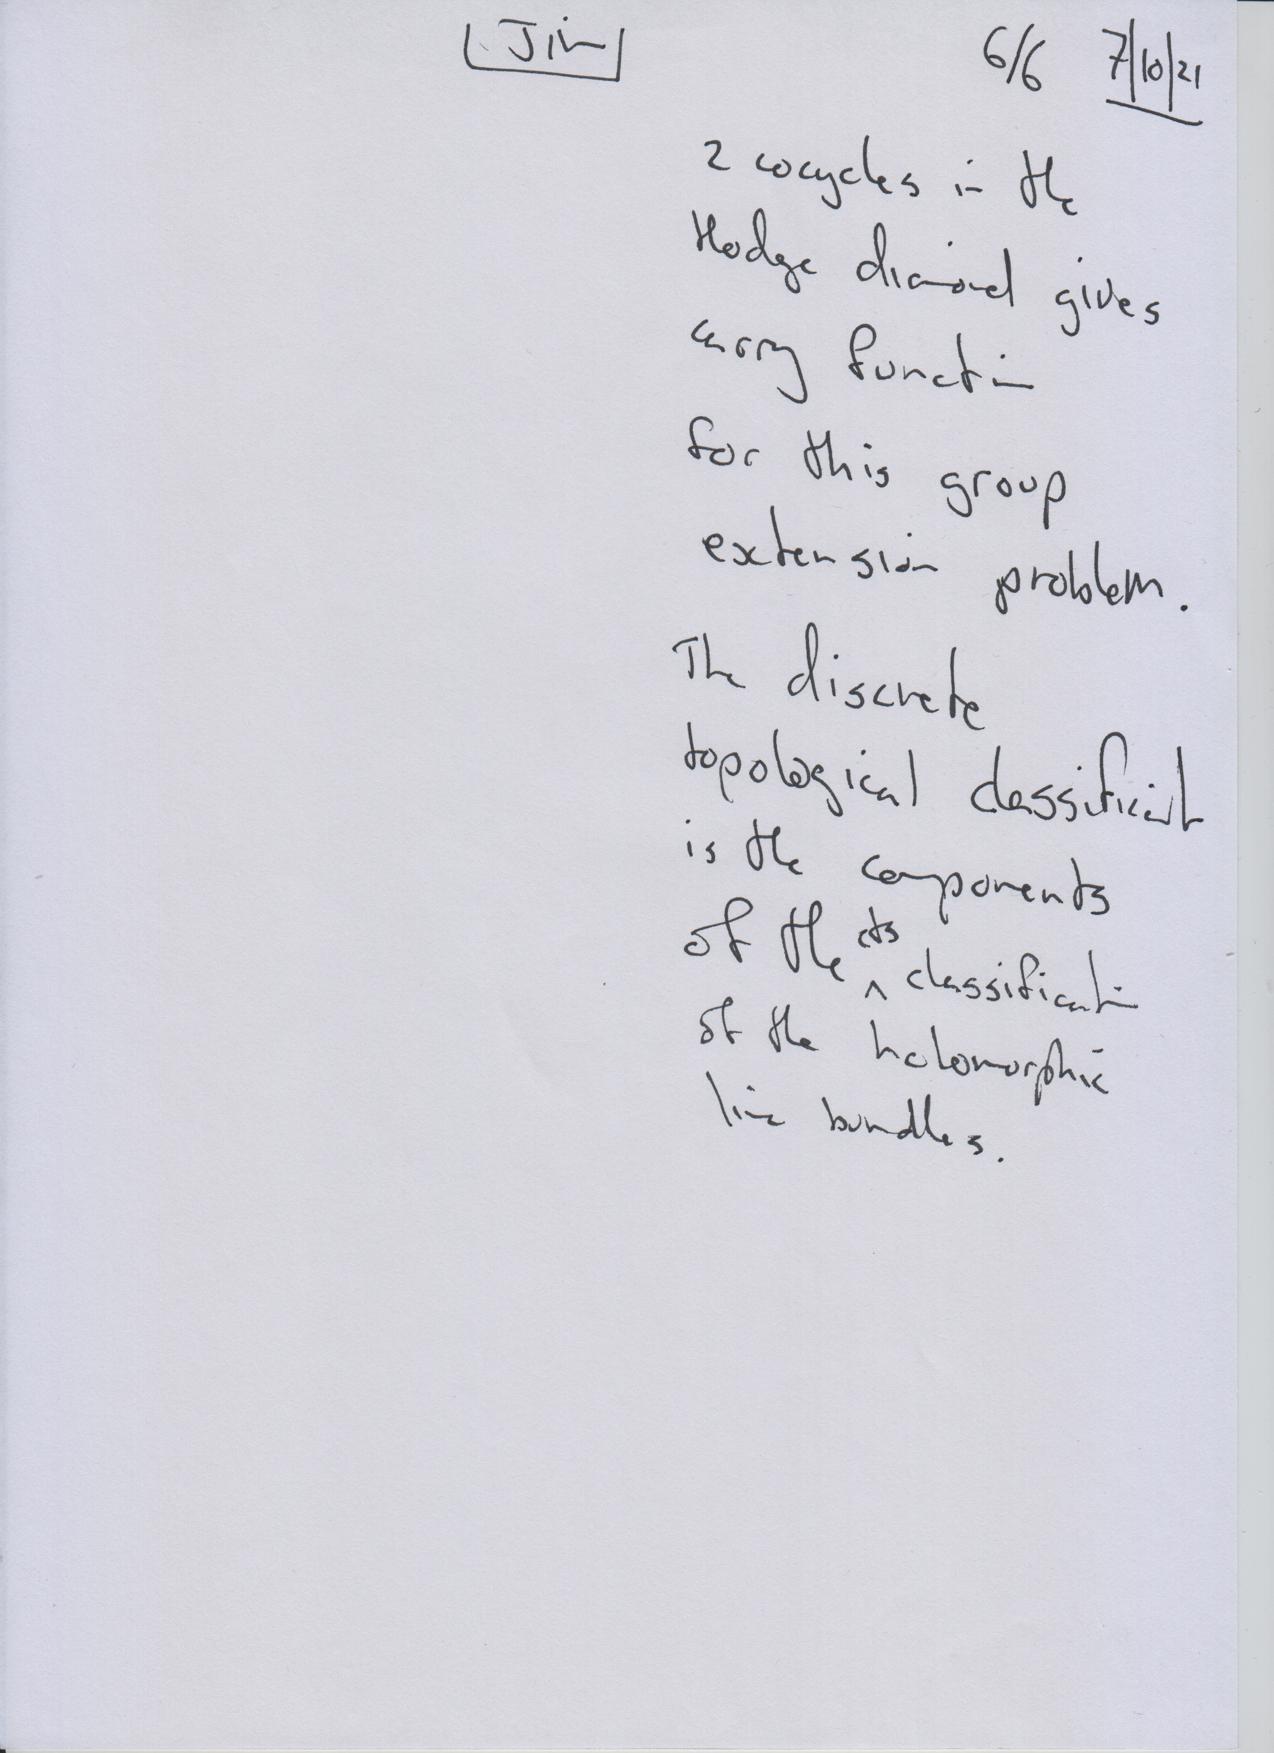 Jim
6/6 7/10/21
2 cocycles in the
Hodge diamond gives
carry function
for this group
extension problem.
The discrete
topological classification
is the components
of the cts classification
of the holomorphic
line bundles.